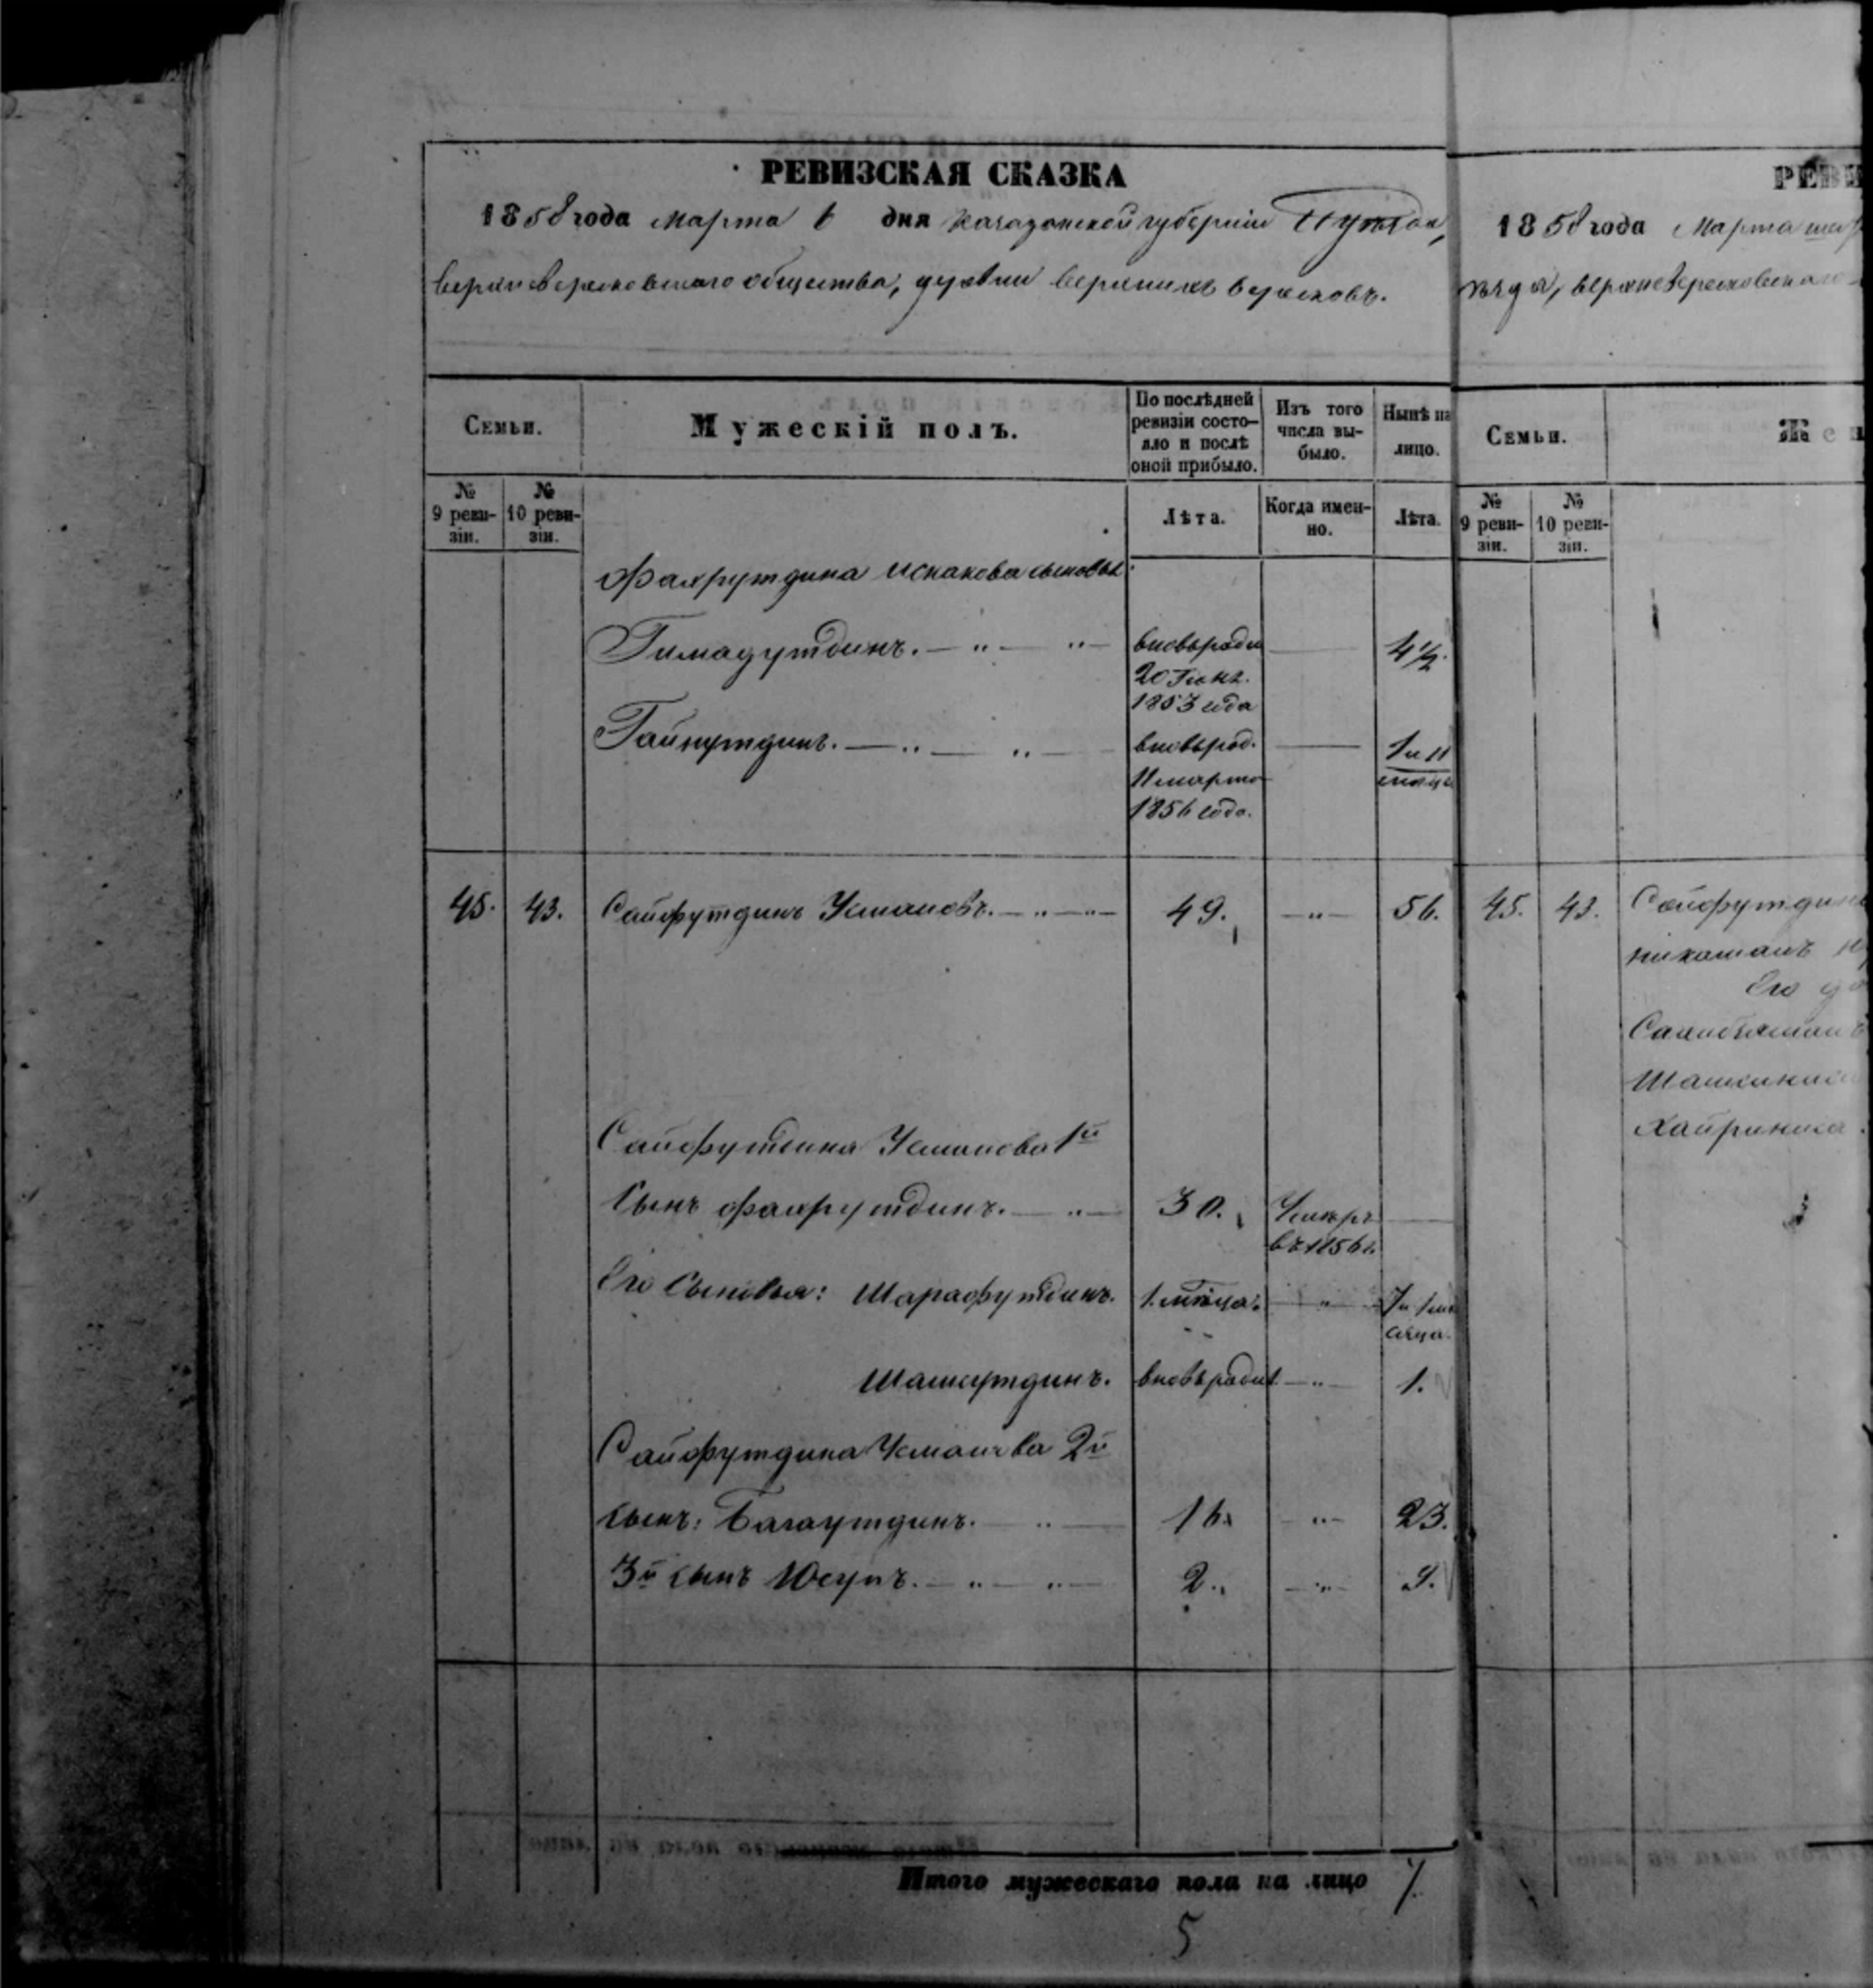 РЕВИЗСКАЯ СКАЗКА
1858 года Марта 6 дня Казанской губернии
общества, деревни верхнихъ
Семьи.
Мужескій полъ.
По послѣдней ревизіи состояло и послѣ оной прибыло.
Изъ того числа выбыло.
Нынѣ на лицо.
№ 9 ревизіи.
№ 10 ревизіи.
Лѣта.
Когда именно.
Лѣта.
Фахрутдина Исхакова сыновья
Гимадутдинъ. вновь роди 4 1/2.
20 Генв.
1853 года
Гайнутдинъ. вновь род. 1 и 11
11 марта
1856 года.
45. 43. Сайфутдинъ Усмановъ. 49. 56.
Сайфутдина Усманова 1й
Сынъ Фахрутдинъ. 30. Умеръ
въ 1856 г.
Его Сыновья: Шарафутдинъ. 1. мѣсяца. 7 и 1 мѣ
сяца.
Шамсутдинъ. вновь родил 1.
Сайфутдина Усманова 2й
сынъ: Багаутдинъ. 16. 23.
3й сынъ Юсупъ. 2. 9.
Итого мужескаго пола на лицо 7
5
РЕВИ
1858 года Марта
Семьи.
Жен
№ 9 ревизіи.
№ 10 ревизіи.
45. 43. Сайфутдина
Его до
Хайриниса